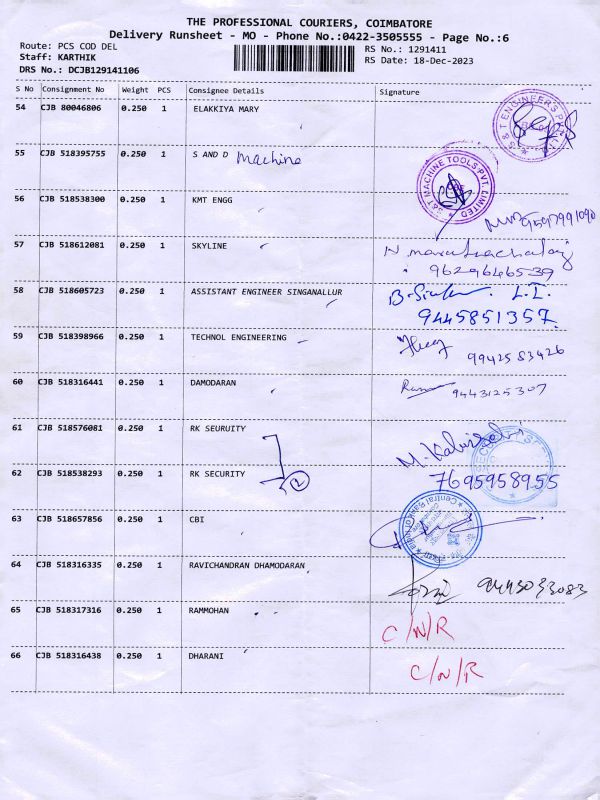 THE PROFESSIONAL COURIERS, COIMBATORE
Delivery Runsheet - MO - Phone No.:0422-3505555 - Page No.:6
Route: PCS COD DEL
RS No.: 1291411
Staff: KARTHIK
RS Date: 18-Dec-2023
DRS No.: DCJB129141106
S No Consignment No Weight PCS Consignee Details Signature
54 CJB 80046806 0.250 1 ELAKKIYA MARY
55 CJB 518395755 0.250 1 S AND D Machine
S&T MACHINE TOOLS PVT. LIMITED
56 CJB 518538300 0.250 1 KMT ENGG 9597991090
57 CJB 518612081 0.250 1 SKYLINE
9629646539
58 CJB 518605723 0.250 1 ASSISTANT ENGINEER SINGANALLUR
9445851357
59 CJB 518398966 0.250 1 TECHNOL ENGINEERING 9942583426
60 CJB 518316441 0.250 1 DAMODARAN 9443125307
61 CJB 518576081 0.250 1 RK SEURUITY
62 CJB 518538293 0.250 1 RK SECURITY 2 7695958955
63 CJB 518657856 0.250 1 CBI
64 CJB 518316335 0.250 1 RAVICHANDRAN DHAMODARAN 9443033083
65 CJB 518317316 0.250 1 RAMMOHAN C/N/R
66 CJB 518316438 0.250 1 DHARANI C/N/R